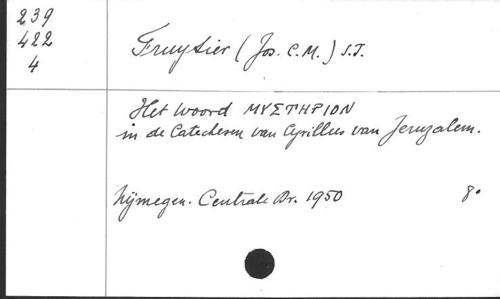 239
422
4
Fruytier (Jos. C.M.) S.J.
Het woord ΜΥΣΤΗΡΙΟΝ
in de Catechesen van Cyrillus van Jeruzalem.
Nijmegen. Centrale Dr. 1950 8°